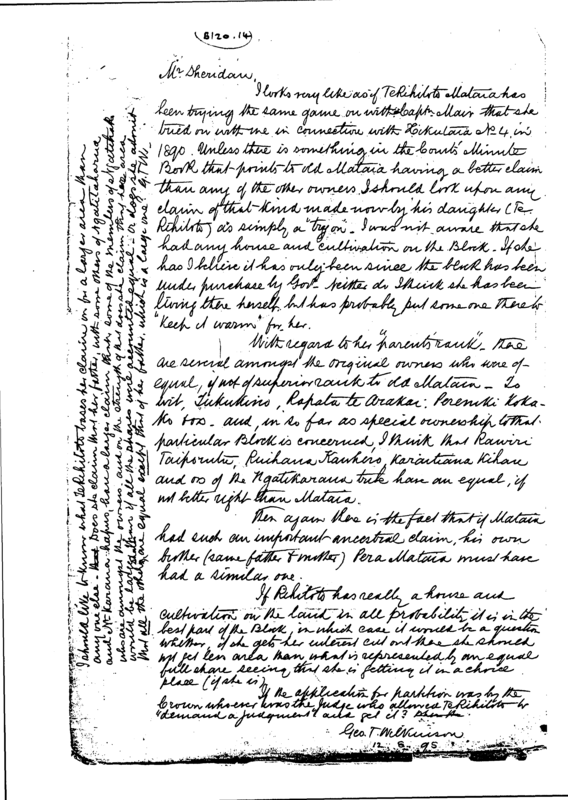 B120.14
Mr Sheridan,
I looks very like as if Te Rihitoto Mataia has
been trying the same game on with Capt. Mair that she
tried on with me in connection with Hikutaia No 4. in
1890. Unless there is something in the Courts' Minute
Book that points to old Mataia having a better claim
than any of the other owners I should look upon any
claim of that kind made now by his daughter (Te
Rihitoto) as simply a "try on". I was not aware that she
had any house and cultivation on the Block. If she
has I believe it has only been since the block has been
under purchase by Govt. Neither do I think she has been
living there herself but has probably put some one there to
"keep it warm" for her.
With regard to her "parents' rank". There
are several amongst the original owners who were of
equal, if not of superior rank to old Mataia - To
wit, Tukukino, Rapata te Arakai, Poreniki Koka-
and in so far as special ownership to that
particular Block is concerned, I think that Rawiri
Taiporutu, Ruihana Kawhero, Karauna Kihau
and os of the Ngatikarana tribe have an equal, if
not better right than Mataia.
Then again there is the fact that if Mataia
had such an important ancestral claim, his own
brother (same father & mother) Pera Mataia must have
had a similar one.
If Rihitoto has really a house and
cultivation on the land in all probability it is in the
best part of the Block, in which case it would be a question
whether, if she gets her interest cut out there she should
not get less area than what is represented by an equal
full share seeing that she is getting it in a choice
place (if she is)
If the application for partition was by the
Crown who was the Judge who allowed Te Rihitoto to
"demand a judgment" and get it?
Geo. T. Wilkinson
12.6.95
I should like to know what Te Rihitoto bases her claim on for a larger area than
anyone else. Does she claim that her father, with some others of Ngatitaharua
and N. Karana having had a larger claim than some of the members of
who are amongst the owners, and on the strength of that doweth claim that her area
would be larger than if all the shares were accounted equal - or does she admit
that all the others are equal except that of her father, which is a large one? G.T.W.